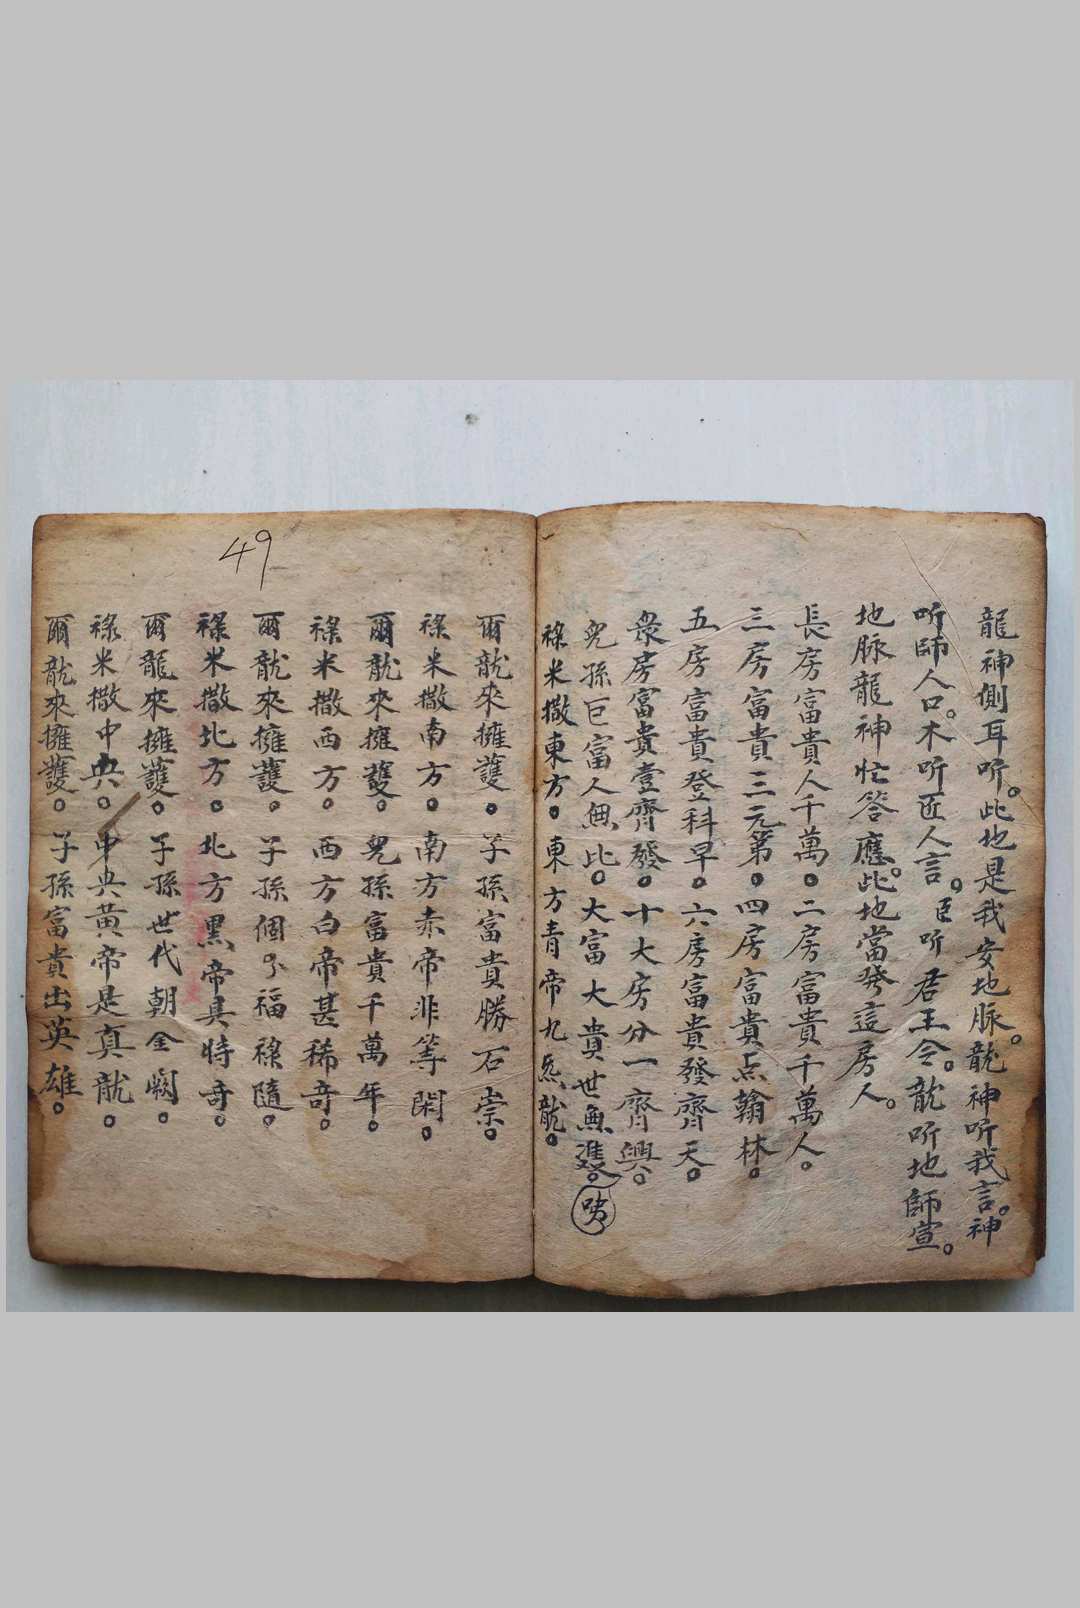 龍神側耳听。此地是我安地脉。龍神听我言。神
听師人口。木听匠人言。臣听君王令。龍听地師宣。
地脉龍神忙答應。此地當発這房人。
長房富貴人千萬。二房富貴千萬人。
三房富貴三元第。四房富貴点翰林。
五房富貴登科早。六房富貴發齊天。
衆房富貴壹齊發。十大房分一齊興。
兒孫巨富人無比。大富大貴世無雙。
祿米撒東方。東方青帝九炁龍。
爾龍來擁護。子孫富貴勝石崇。
祿米撒南方。南方赤帝非等閑。
爾龍來擁護。兒孫富貴千萬年。
祿米撒西方。西方白帝甚稀奇。
爾龍來擁護。子孫個々福祿隨。
祿米撒北方。北方黑帝具特奇。
爾龍來擁護。子孫世代朝金闕。
祿米撒中央。中央黃帝是真龍。
爾龍來擁護。子孫富貴出英雄。
49